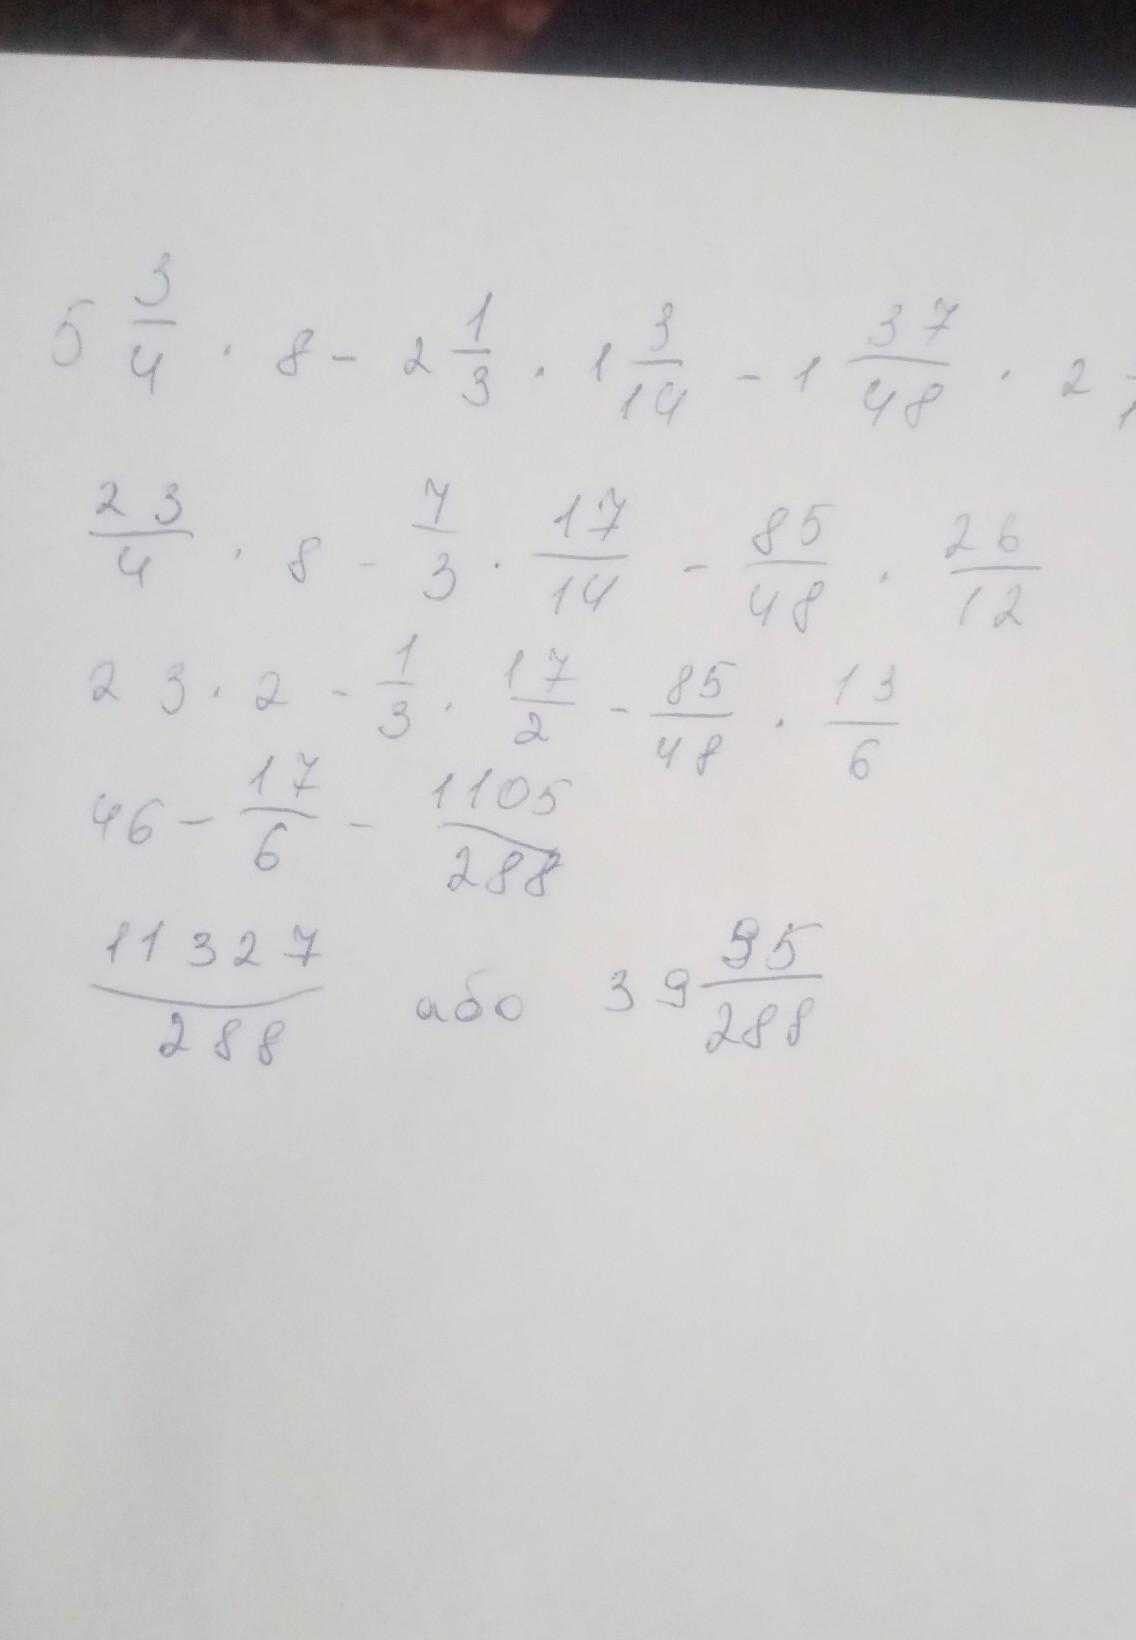 5 3/4 · 8 - 2 1/3 · 1 3/14 - 1 37/48 · 2
23/4 · 8 - 7/3 · 17/14 - 85/48 · 26/12
23 · 2 - 1/3 · 17/2 - 85/48 · 13/6
46 - 17/6 - 1105/288
11327/288 або 39 95/288